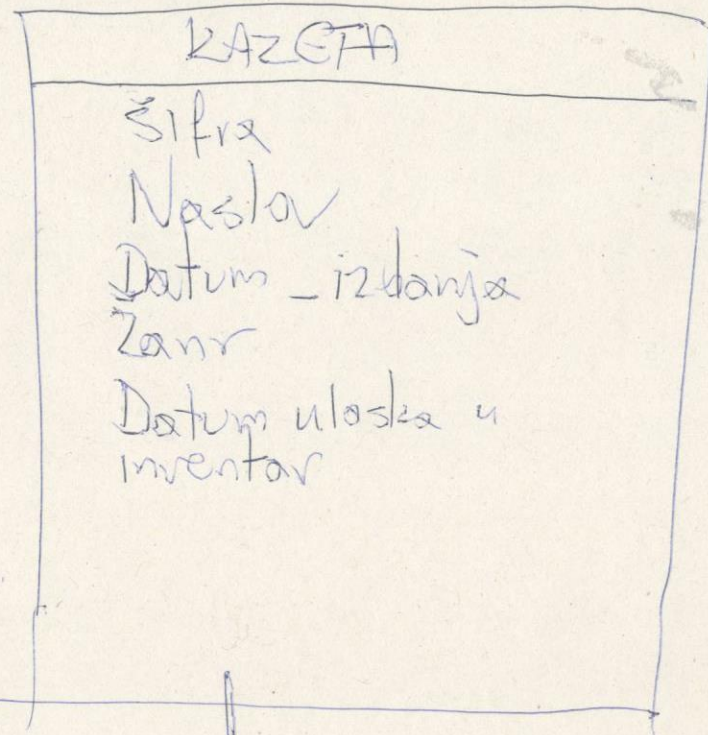 KAZETA
Šifra
Naslov
Datum_izdanja
Žanr
Datum ulaska u
inventar